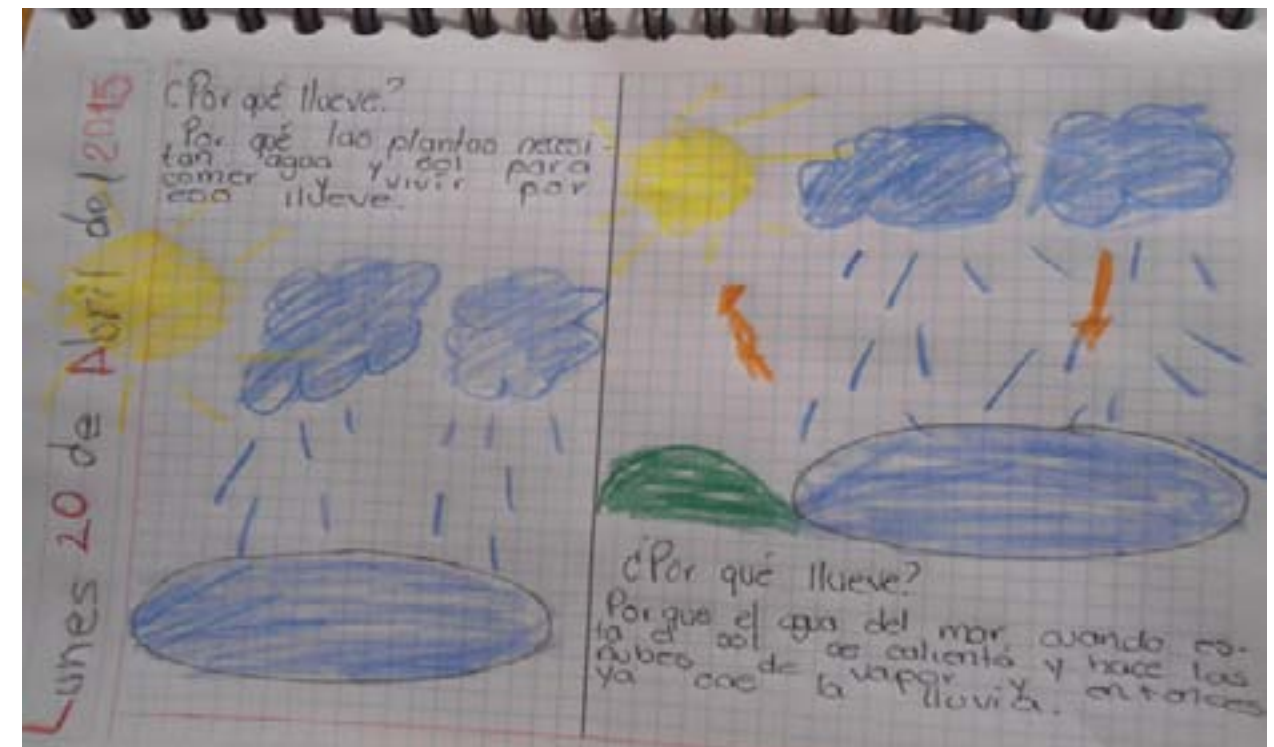 Lunes 20 de Abril del 2015
¿Por qué llueve?
Por qué las plantas necesi-
tan agua y sol para
comer y vivir por
eso llueve.
¿Por qué llueve?
Porque el agua del mar cuando es-
ta el sol se calienta y hace las
nubes de vapor y entonces
ya cae la lluvia.